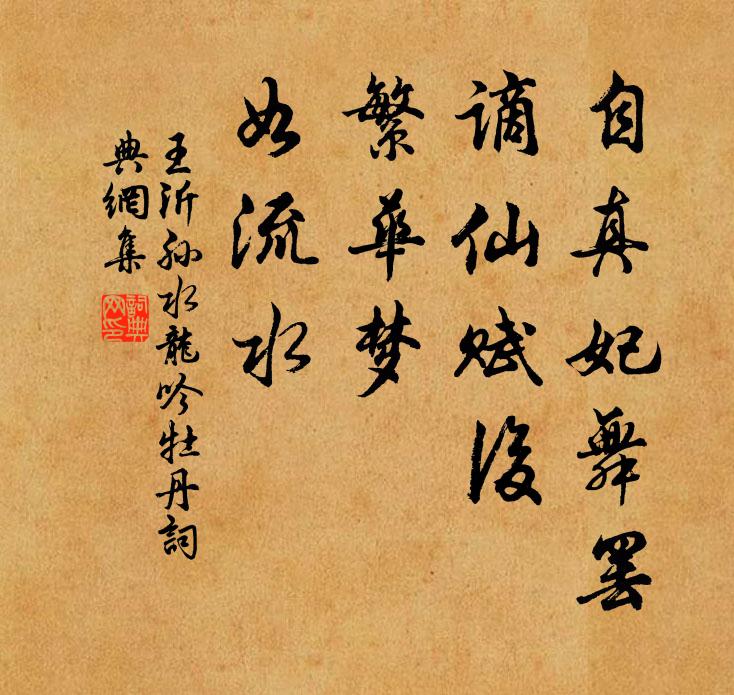 自真妃舞罢
謫仙赋後
繁華梦
如流水
王沂孙水龍吟牡丹詞
典網集
詞典網印